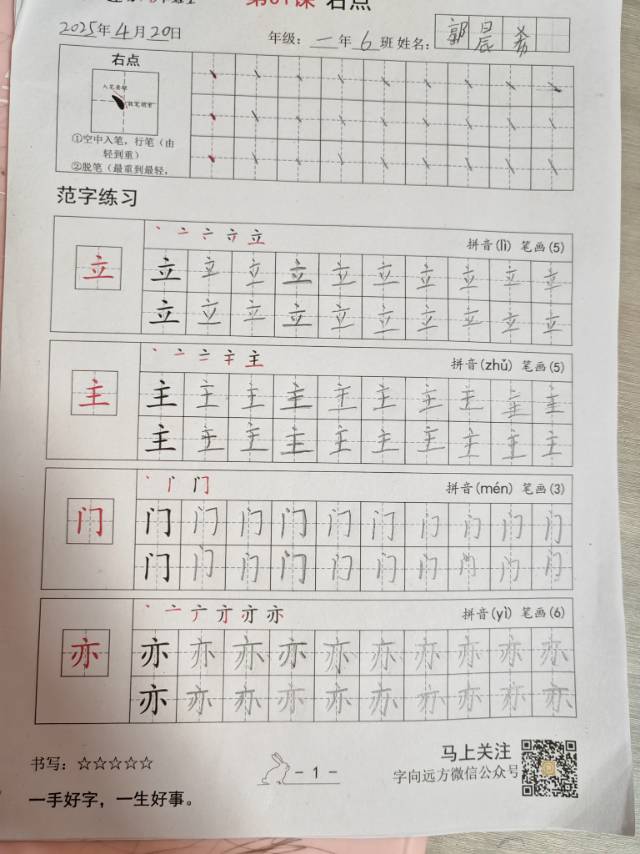 第01课 右点
2025年4月20日
年级：一年6班 姓名：郭晨希
右点
①空中入笔，行笔（由
轻到重）
②脱笔（最重到最轻，
范字练习
丶 亠 立 拼音(lì) 笔画(5)
立 立 立 立 立 立 立 立 立 立 立
立 立 立 立 立 立 立 立 立 立
丶 亠 主 拼音(zhǔ) 笔画(5)
主 主 主 主 主 主 主 主 主 主 主
主 主 主 主 主 主 主 主 主 主
丶 门 拼音(mén) 笔画(3)
门 门 门 门 门 门 门 门 门 门 门
门 门 门 门 门 门 门 门 门 门
丶 亠 亦 拼音(yì) 笔画(6)
亦 亦 亦 亦 亦 亦 亦 亦 亦 亦 亦
亦 亦 亦 亦 亦 亦 亦 亦 亦 亦
书写：☆☆☆☆☆
- 1 -
马上关注
字向远方微信公众号
一手好字，一生好事。